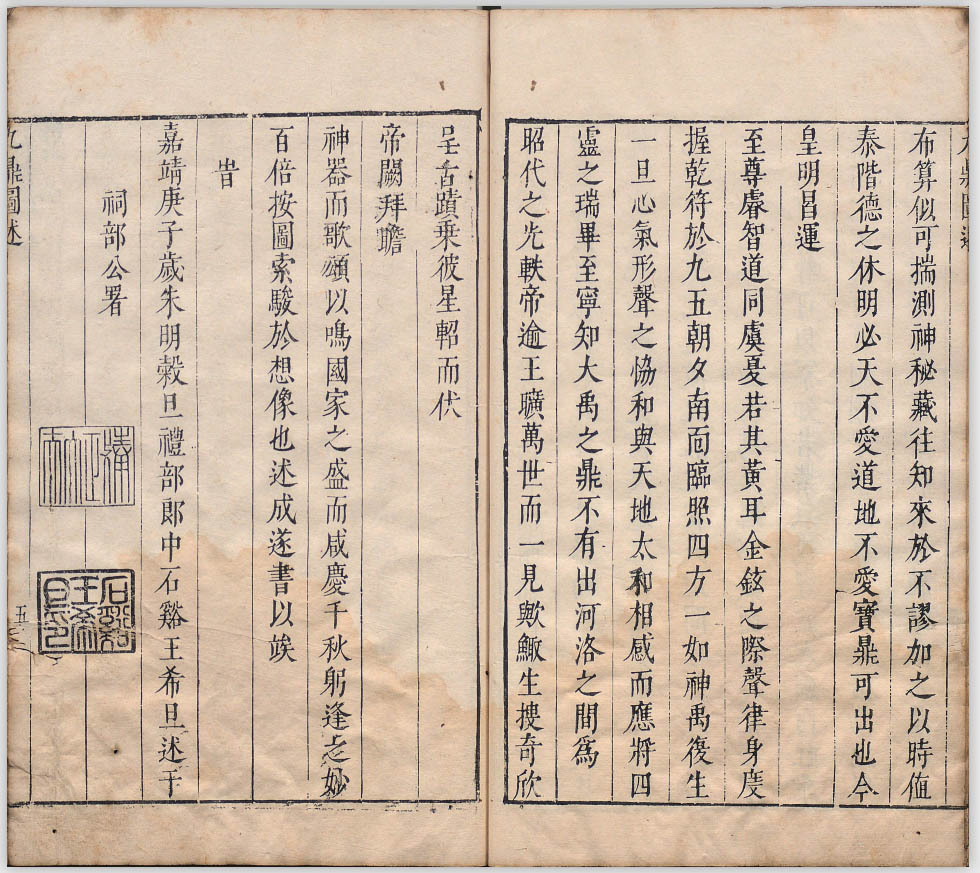 九鼎圖述
布算似可揣測神秘藏往知來於不謬加之以時值
泰階德之休明必天不愛道地不愛寶鼎可出也今
皇明昌運
至尊睿智道同虞夏若其黃耳金鉉之際聲律身度
握乾符於九五朝夕南面臨照四方一如神禹復生
一旦心氣形聲之恊和與天地太和相感而應將四
靈之瑞畢至寧知大禹之鼎不有出河洛之間爲
昭代之先軼帝逾王曠萬世而一見歟鯫生搜奇欣
呈古蹟乗彼星軺而伏
帝闕拜瞻
神器而歌頌以鳴國家之盛而咸慶千秋躬逢之妙
百倍按圖索駿於想像也述成遂書以竢
旹
嘉靖庚子歲朱明榖旦禮部郎中石谿王希旦述于
祠部公署
石谿
王希
旦印
九鼎圖述
五